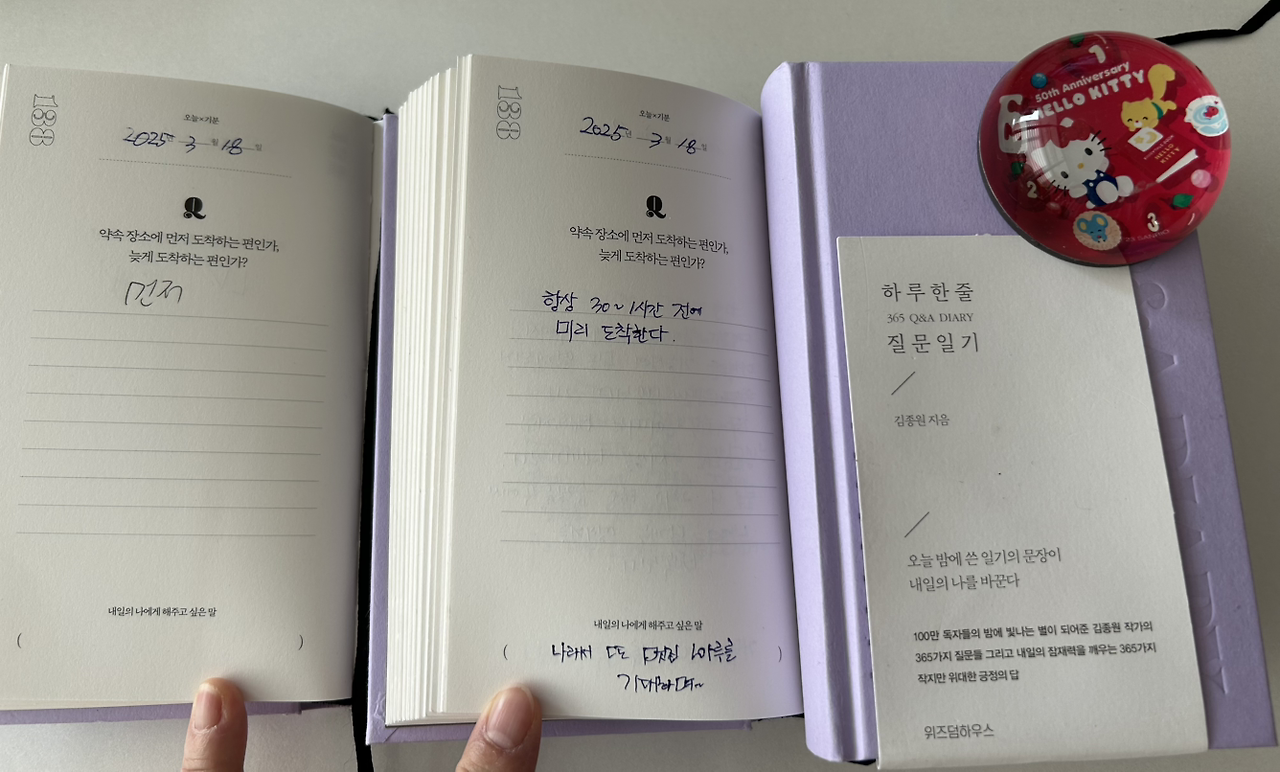 188
오늘×기분
2025년 3월 18일
Q
약속 장소에 먼저 도착하는 편인가,
늦게 도착하는 편인가?
먼저
내일의 나에게 해주고 싶은 말
(                    )
188
오늘×기분
2025년 3월 18일
Q
약속 장소에 먼저 도착하는 편인가,
늦게 도착하는 편인가?
항상 30~1시간 전에
미리 도착한다.
내일의 나에게 해주고 싶은 말
( 또 하루를 )
기대하며~
1
50th Anniversary
HELLO KITTY
E
HELLO
KITTY
2
3
SANRIO
하루한줄
365 Q&A DIARY
질문일기
김종원 지음
오늘 밤에 쓴 일기의 문장이
내일의 나를 바꾼다
100만 독자들의 밤에 빛나는 별이 되어준 김종원 작가의
365가지 질문들 그리고 내일의 잠재력을 깨우는 365가지
작지만 위대한 긍정의 답
위즈덤하우스
Q&A DIARY